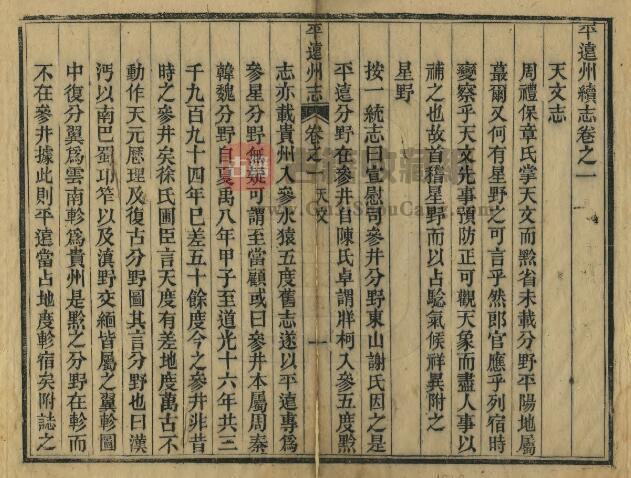 平遠州續志卷之一
天文志
周禮保章氏掌天文而黔省未載分野平陽地屬
蕞爾又何有星野之可言乎然郎官應乎列宿時
變察乎天文先事預防正可觀天象而盡人事以
補之也故首稽星野而以占驗氣候祥異附之
星野
按一統志曰宣慰司參井分野東山謝氏因之是
平遠分野在參井自陳氏卓謂牂柯入參五度黔
平遠州志 卷之一 天文 一
志亦載貴州入參水猿五度舊志遂以平遠專為
參星分野無疑可謂至當顧或曰參井本屬周秦
韓魏分野自夏禹八年甲子至道光十六年共三
千九百九十四年已差五十餘度今之參井非昔
時之參井矣徐氏圃臣言天度有差地度萬古不
動作天元曆理及復古分野圖其言分野也曰漢
沔以南巴蜀邛笮以及滇野交緬皆屬之翼軫圖
中復分翼為雲南軫為貴州是黔之分野在軫而
不在參井據此則平遠當占地度軫宿矣附誌之